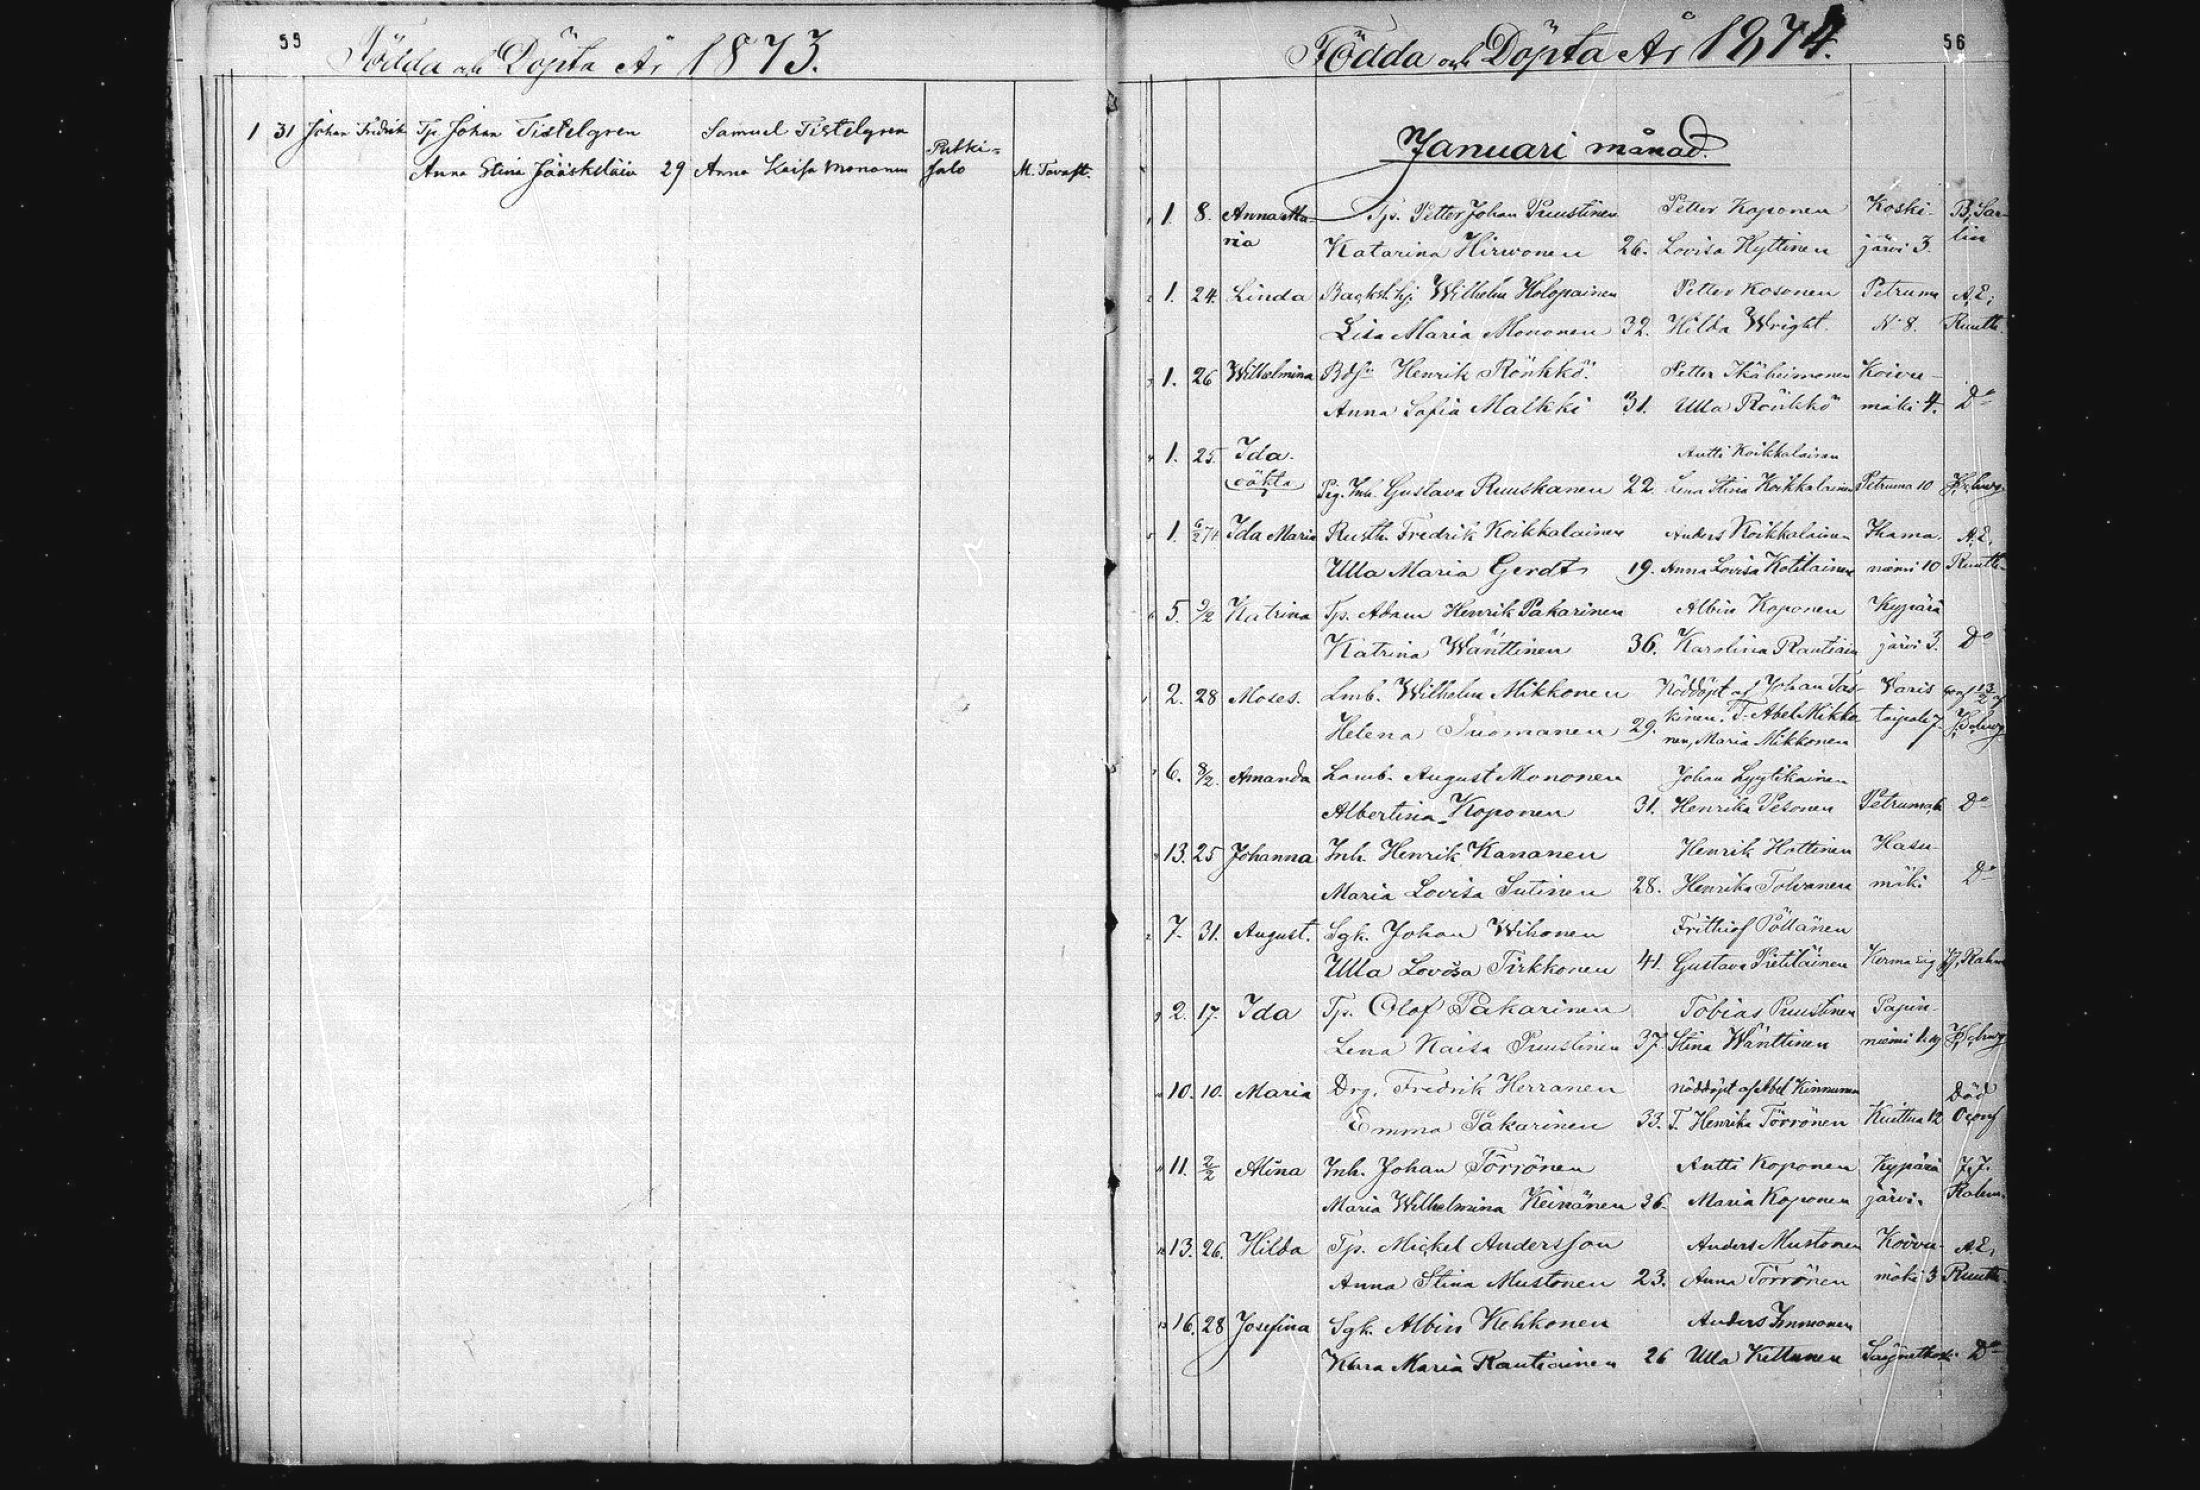 59
Födda och Döpta År 1873.
1 31 Johan Fredrik Tp. Johan Tistelgren Samuel Tistelgren
Anna Stina Jääskeläin 29 Anna Kaisa Mononen Putki=
salo M. Tavast.
56
Födda och Döpta År 1874.
Januari månad.
1 1. 8. Anna Ma- Tp. Petter Johan Puustinen Petter Koponen Koski- B, Sar-
ria Katarina Hirvonen 26. Lovisa Hyttinen järvi 3. lin
2 1. 24. Linda Wilhelm Holopainen Petter Kosonen Petruma A. E,
Lisa Maria Mononen 32. Hilda Wright. N 8. Ruuth.
3 1. 26 Wilhelmina Henrik Rönkkö. Petter Ikäheimonen Koivu-
Anna Sofia Malkki 31. Ulla Rönkkö mäki 4. Do
4 1. 25. Ida. Antti Koikkalainen
oäkta Pig. Inh. Gustava Ruuskanen 22. Lena Stina Koikkalainen Petruma 10
5 1. 6/2 74. Ida Maria Rusth. Fredrik Koikkalainen Anders Koikkalainen Ihama- A. E,
Ulla Maria Gerdt 19. Anna Lovisa Kotilainen niemi 10 Ruuth
6 5. 9/2 Katrina Tp. Adam Henrik Pakarinen Albin Koponen Kypärä
Katrina Wänttinen 36. Karolina Rautiain järvi 3. Do
1 2. 28 Moses. Lmb. Wilhelm Mikkonen Nöddöpt af Johan Tas- Varis
Helena Tuomanen 29. kinen. F. Abel Mikko taipale 7.
nen, Maria Mikkonen
7 6. 8/2. Amanda Lamb. August Mononen Johan Lyytikainen
Albertina Koponen 31. Henrika Pesonen Petruma 6 Do
13. 25 Johanna Inh. Henrik Kananen Henrik Hottinen Hasu-
Maria Lovisa Sutinen 28. Henrika Tolvanen mäki Do
2 7. 31. August. Sgk. Johan Wihonen Frithiof Pöllänen
Ulla Lovisa Tirkkonen 41. Gustava Pietiläinen Kerma
9 2. 17. Ida Tp. Olof Pakarinen Tobias Puustinen Papin-
Lena Kaisa Puustinen 37. Stina Wänttinen niemi
10 10. 10. Maria Drg. Fredrik Herranen Nöddöpt af Abel Kinnunen Död
Emma Pakarinen 33. F. Henrika Törrönen Kuittua 12 Oconf
11 11. 2/2 Alina Inh. Johan Törrönen Antti Koponen Kypärä J. J.
Maria Wilhelmina Keinänen 36. Maria Koponen järvi. Rahm.
12 13. 26. Hilda Tp. Mickel Andersson Anders Mustonen Koivu- A. E,
Anna Stina Mustonen 23. Anna Törrönen mäki 3 Ruuth.
13 16. 28 Josefina Sgk. Albin Kehkonen Anders Immonen
Klara Maria Rautiainen 26 Ulla Kettunen Do